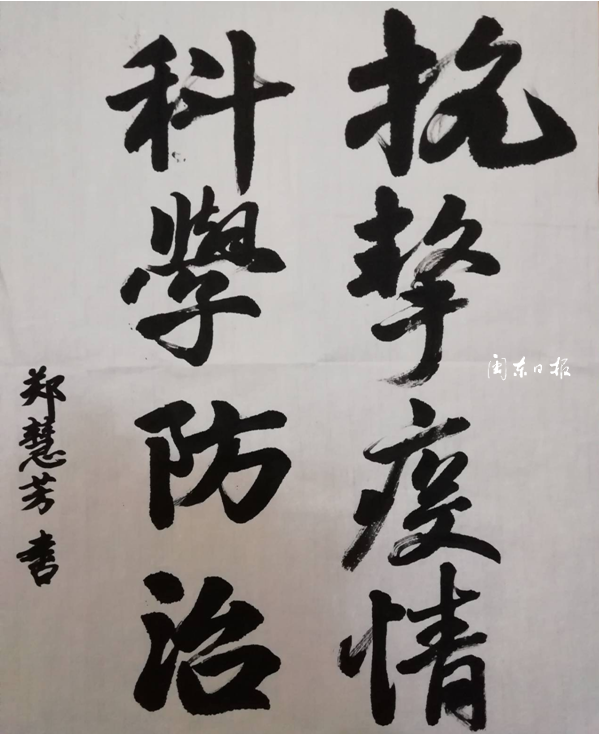 抗擊疫情
科學防治
郑慧芳書
闽东日报